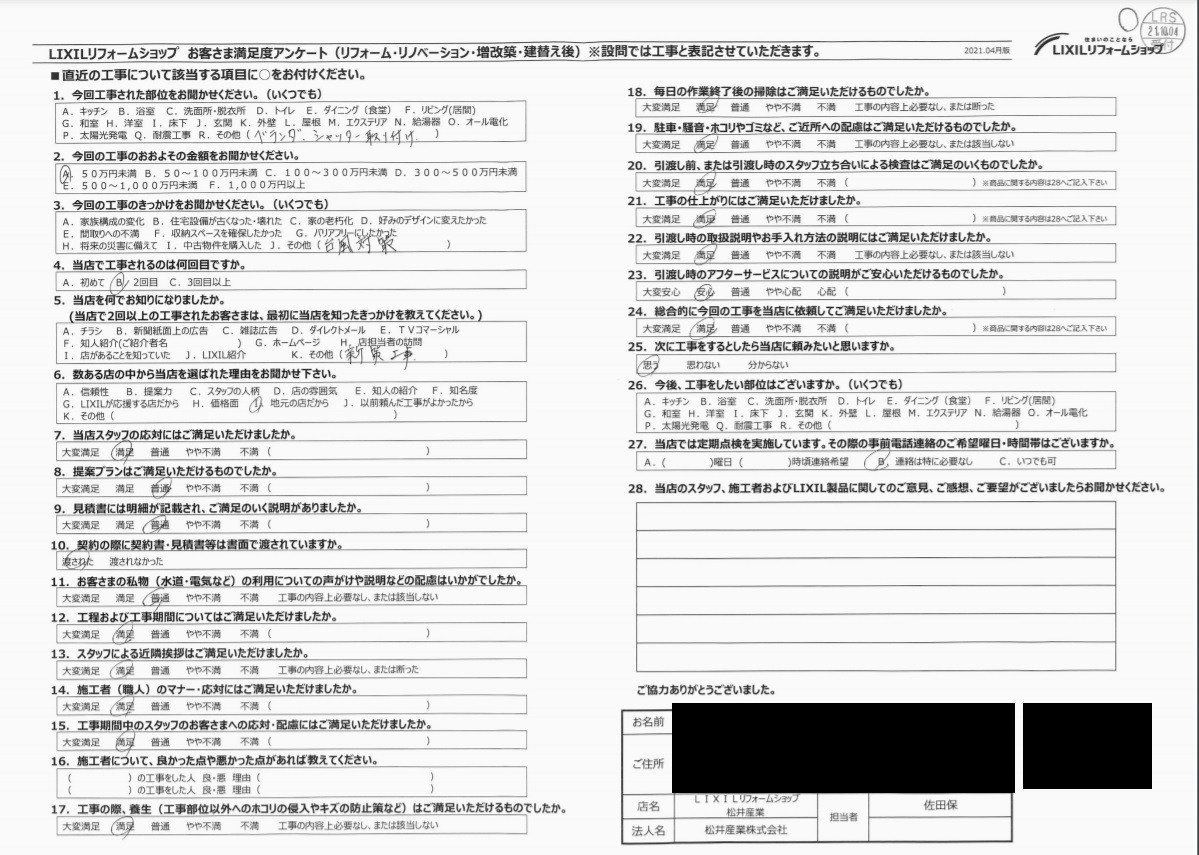 LRS
21.10.04
受付
LIXILリフォームショップ お客さま満足度アンケート（リフォーム・リノベーション・増改築・建替え後）※設問では工事と表記させていただきます。
2021.04月版
住まいのことなら
LIXILリフォームショップ
■直近の工事について該当する項目に○をお付けください。
1．今回工事された部位をお聞かせください。（いくつでも）
A．キッチン B．浴室 C．洗面所・脱衣所 D．トイレ E．ダイニング（食堂） F．リビング(居間)
G．和室 H．洋室 I．床下 J．玄関 K．外壁 L．屋根 M．エクステリア N．給湯器 O．オール電化
P．太陽光発電 Q．耐震工事 R．その他（ベランダ、シャッター取り付け ）
2．今回の工事のおおよその金額をお聞かせください。
A．50万円未満 B．50～100万円未満 C．100～300万円未満 D．300～500万円未満
E．500～1,000万円未満 F．1,000万円以上
3．今回の工事のきっかけをお聞かせください。（いくつでも）
A．家族構成の変化 B．住宅設備が古くなった・壊れた C．家の老朽化 D．好みのデザインに変えたかった
E．間取りへの不満 F．収納スペースを確保したかった G．バリアフリーにしたかった
H．将来の災害に備えて I．中古物件を購入した J．その他（台風対策 ）
4．当店で工事されるのは何回目ですか。
A．初めて B．2回目 C．3回目以上
5．当店を何でお知りになりましたか。
（当店で2回以上の工事されたお客さまは、最初に当店を知ったきっかけを教えてください。）
A．チラシ B．新聞紙面上の広告 C．雑誌広告 D．ダイレクトメール E．TVコマーシャル
F．知人紹介(ご紹介者名 ) G．ホームページ H．店担当者の訪問
I．店があることを知っていた J．LIXIL紹介 K．その他（新築工事 ）
6．数ある店の中から当店を選ばれた理由をお聞かせ下さい。
A．信頼性 B．提案力 C．スタッフの人柄 D．店の雰囲気 E．知人の紹介 F．知名度
G．LIXILが応援する店だから H．価格面 I．地元の店だから J．以前頼んだ工事がよかったから
K．その他（ ）
7．当店スタッフの応対にはご満足いただけましたか。
大変満足 満足 普通 やや不満 不満（ ）
8．提案プランはご満足いただけるものでしたか。
大変満足 満足 普通 やや不満 不満（ ）
9．見積書には明細が記載され、ご満足のいく説明がありましたか。
大変満足 満足 普通 やや不満 不満（ ）
10．契約の際に契約書・見積書等は書面で渡されていますか。
渡された 渡されなかった
11．お客さまの私物（水道・電気など）の利用についての声がけや説明などの配慮はいかがでしたか。
大変満足 満足 普通 やや不満 不満 工事の内容上必要なし、または該当しない
12．工程および工事期間についてはご満足いただけましたか。
大変満足 満足 普通 やや不満 不満（ ）
13．スタッフによる近隣挨拶はご満足いただけましたか。
大変満足 満足 普通 やや不満 不満 工事の内容上必要なし、または断った
14．施工者（職人）のマナー・応対にはご満足いただけましたか。
大変満足 満足 普通 やや不満 不満（ ）
15．工事期間中のスタッフのお客さまへの応対・配慮にはご満足いただけましたか。
大変満足 満足 普通 やや不満 不満（ ）
16．施工者について、良かった点や悪かった点があれば教えてください。
（ ）の工事をした人 良・悪 理由（ ）
（ ）の工事をした人 良・悪 理由（ ）
17．工事の際、養生（工事部位以外へのホコリの侵入やキズの防止策など）はご満足いただけるものでしたか。
大変満足 満足 普通 やや不満 不満 工事の内容上必要なし、または該当しない
18．毎日の作業終了後の掃除はご満足いただけるものでしたか。
大変満足 満足 普通 やや不満 不満 工事の内容上必要なし、または断った
19．駐車・騒音・ホコリやゴミなど、ご近所への配慮はご満足いただけるものでしたか。
大変満足 満足 普通 やや不満 不満 工事の内容上必要なし、または該当しない
20．引渡し前、または引渡し時のスタッフ立ち合いによる検査はご満足のいくものでしたか。
大変満足 満足 普通 やや不満 不満（ ）※商品に関する内容は28へご記入下さい
21．工事の仕上がりにはご満足いただけましたか。
大変満足 満足 普通 やや不満 不満（ ）※商品に関する内容は28へご記入下さい
22．引渡し時の取扱説明やお手入れ方法の説明にはご満足いただけましたか。
大変満足 満足 普通 やや不満 不満 工事の内容上必要なし、または該当しない
23．引渡し時のアフターサービスについての説明がご安心いただけるものでしたか。
大変安心 安心 普通 やや心配 心配（ ）
24．総合的に今回の工事を当店に依頼してご満足いただけましたか。
大変満足 満足 普通 やや不満 不満（ ）※商品に関する内容は28へご記入下さい
25．次に工事をするとしたら当店に頼みたいと思いますか。
思う 思わない 分からない
26．今後、工事をしたい部位はございますか。（いくつでも）
A．キッチン B．浴室 C．洗面所・脱衣所 D．トイレ E．ダイニング（食堂） F．リビング(居間)
G．和室 H．洋室 I．床下 J．玄関 K．外壁 L．屋根 M．エクステリア N．給湯器 O．オール電化
P．太陽光発電 Q．耐震工事 R．その他（ ）
27．当店では定期点検を実施しています。その際の事前電話連絡のご希望曜日・時間帯はございますか。
A．（ ）曜日（ ）時頃連絡希望 B．連絡は特に必要なし C．いつでも可
28．当店のスタッフ、施工者およびLIXIL製品に関してのご意見、ご感想、ご要望がございましたらお聞かせください。
ご協力ありがとうございました。
お名前
ご住所
店名
LIXILリフォームショップ
松井産業
担当者
佐田保
法人名
松井産業株式会社